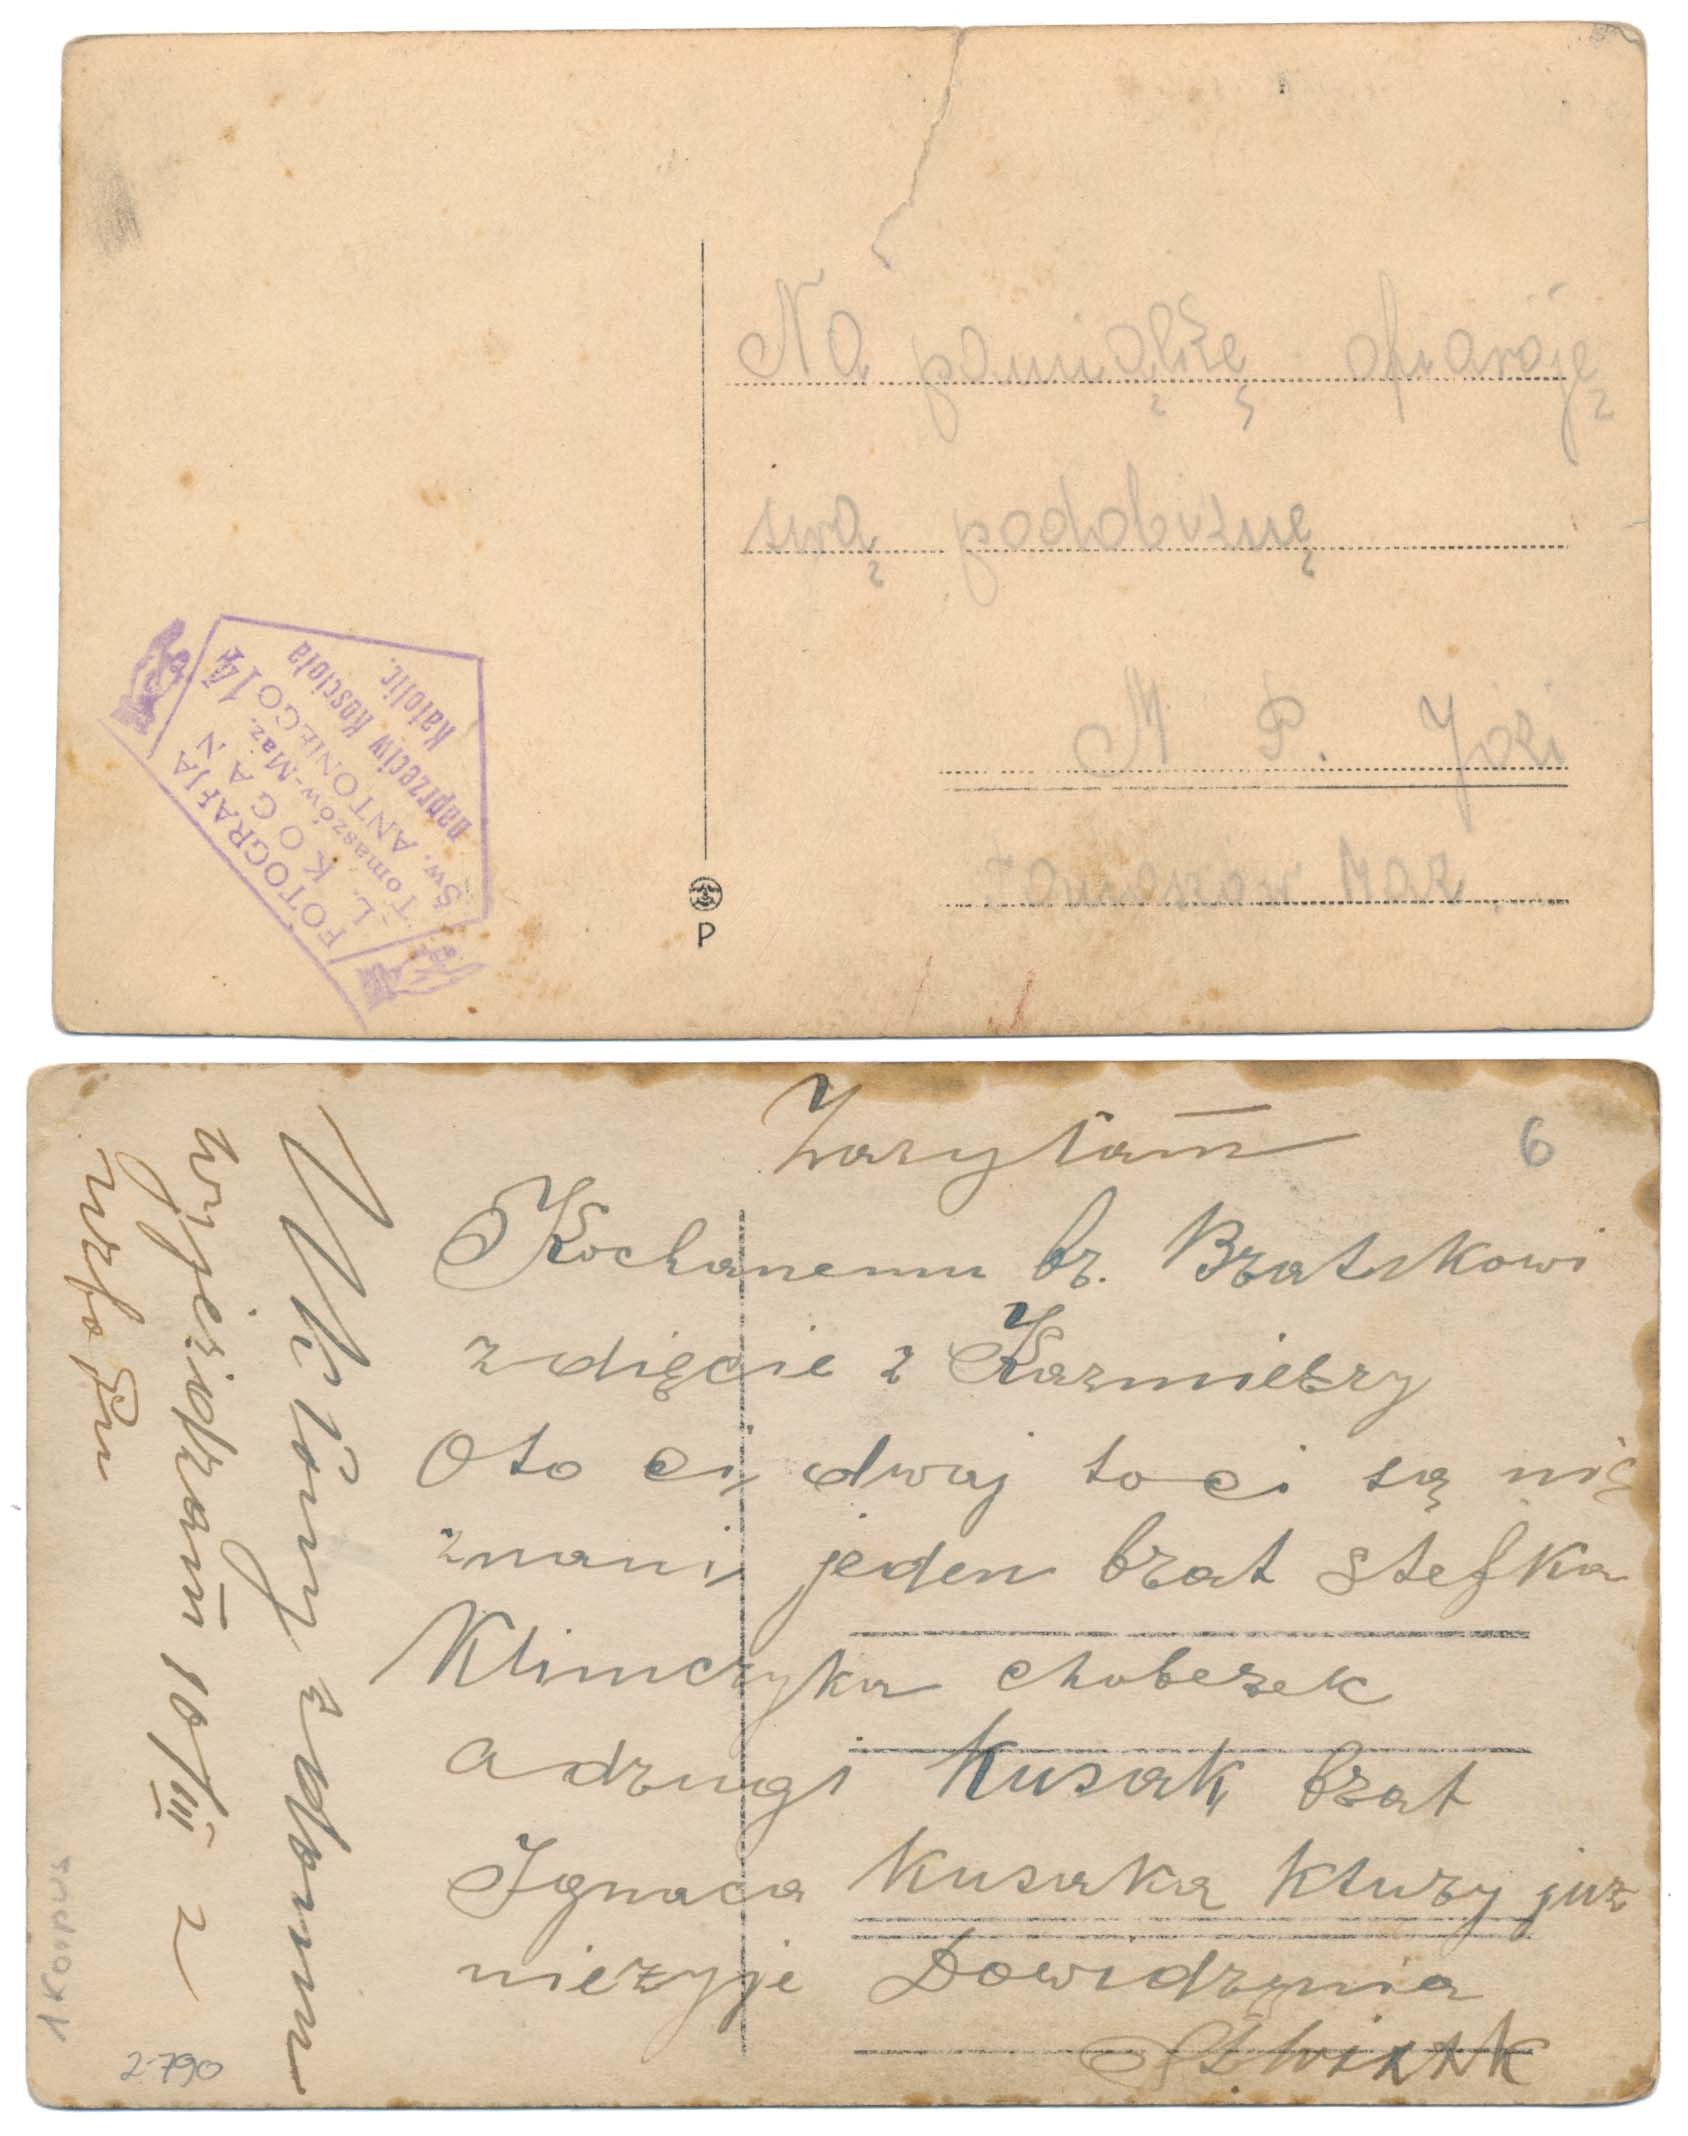 Na pamiątkę ofiaroję
swą podobiznę
M P. Józi
Tomaszów Maz.
FOTOGRAFJA
L. KOGAN
Tomaszów-Maz.
Św. ANTONIEGO 14
naprzeciw Kościoła
Katolic.
P
6
Kochanemu br. Bratu
zdięcie z Kazmierzy
Oto ci dwaj to ci są nie
znani, jeden brat Stefka
Klimczyka
a drugi Kusak, brat
Ignaca Kusaka ktury juz
niezyje Dowidzynia
Ukłony z domu
wyjezidzam 10/III
1 Korpus
2-790